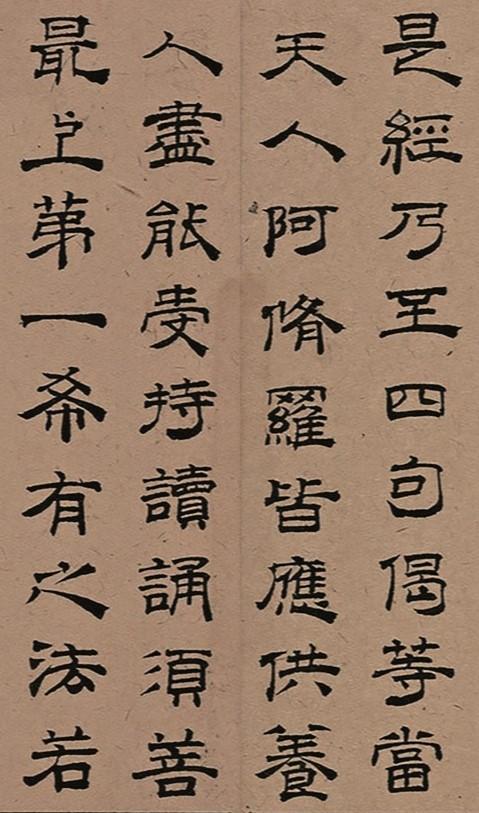 是經乃至四句偈等當
天人阿脩羅皆應供養
人盡能受持讀誦須菩
最上第一希有之法若